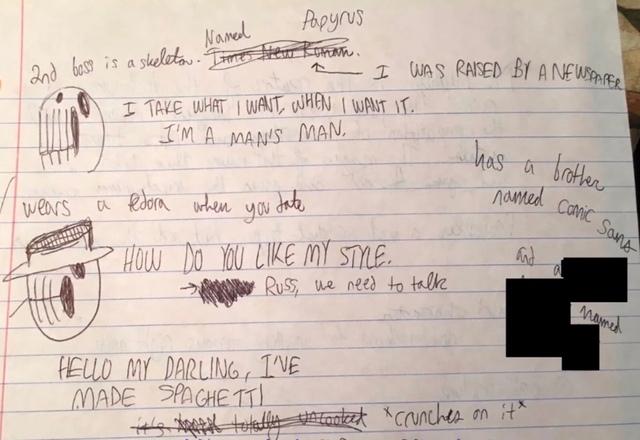 2nd boss is a skeleton. Named Papyrus
Times New Roman.
I WAS RAISED BY A NEWSPAPER
I TAKE WHAT I WANT, WHEN I WANT IT.
I'M A MAN'S MAN.
has a brother
named Comic Sans
wears a fedora when you date
and a
named
HOW DO YOU LIKE MY STYLE.
Russ, we need to talk
HELLO MY DARLING, I'VE
MADE SPAGHETTI
it's totally uncooked *crunches on it*